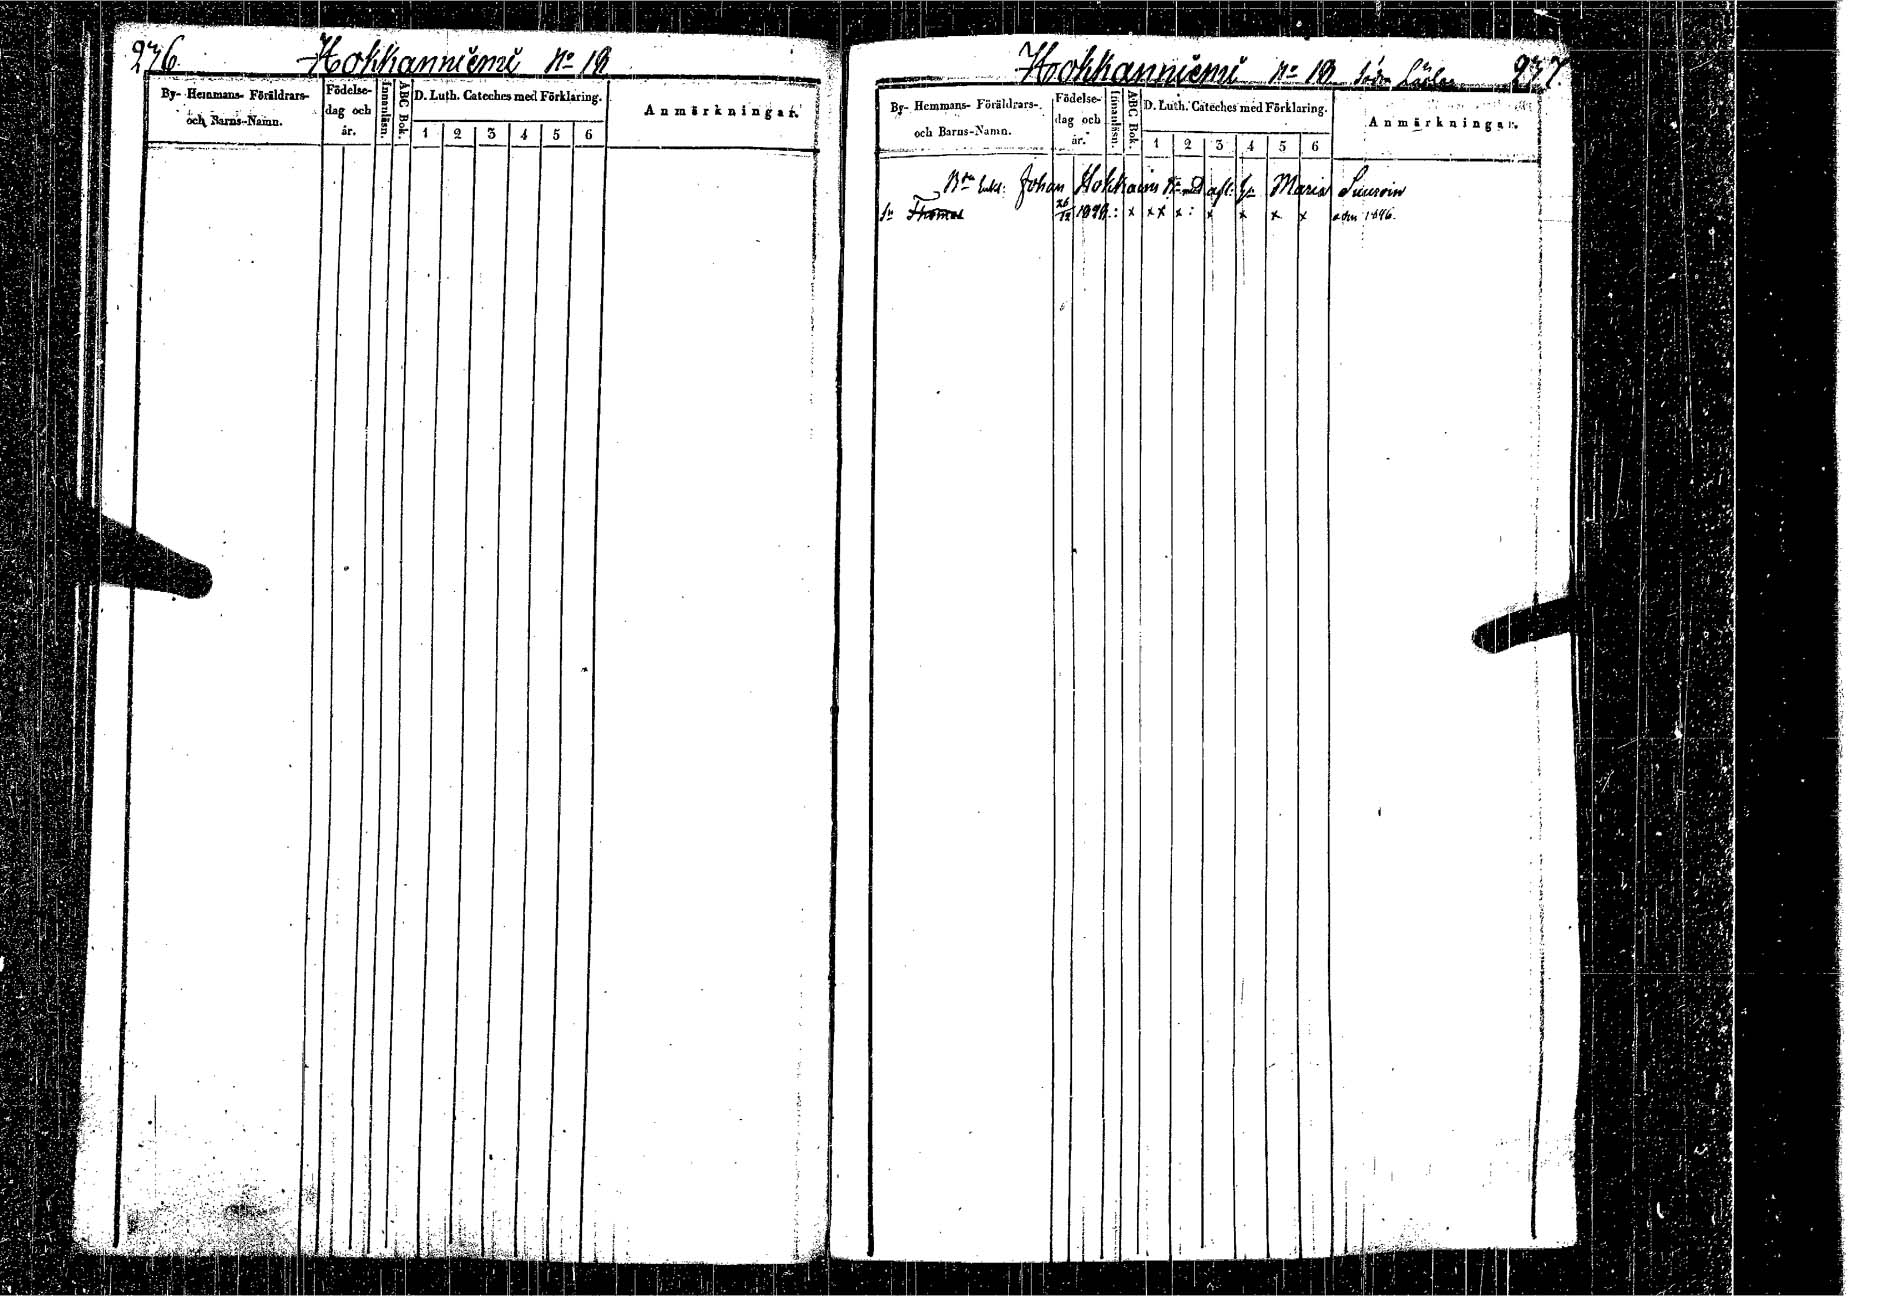 276 Hokkanniemi No 12
By- Hemmans- Föräldrars- och Barns-Namn.
Födelse- dag och år.
Innanläsn.
ABC Bok.
D. Luth. Cateches med Förklaring.
1 2 3 4 5 6
Anmärkningar.
Hokkanniemi No 12 Södra 277
By- Hemmans- Föräldrars- och Barns-Namn.
Födelse- dag och år.
Innanläsn.
ABC Bok.
D. Luth. Cateches med Förklaring.
1 2 3 4 5 6
Anmärkningar.
Johan Hokkanen afl: Maria
Sn Thomas 26/12 : x x x x : x x x x adm 1846.